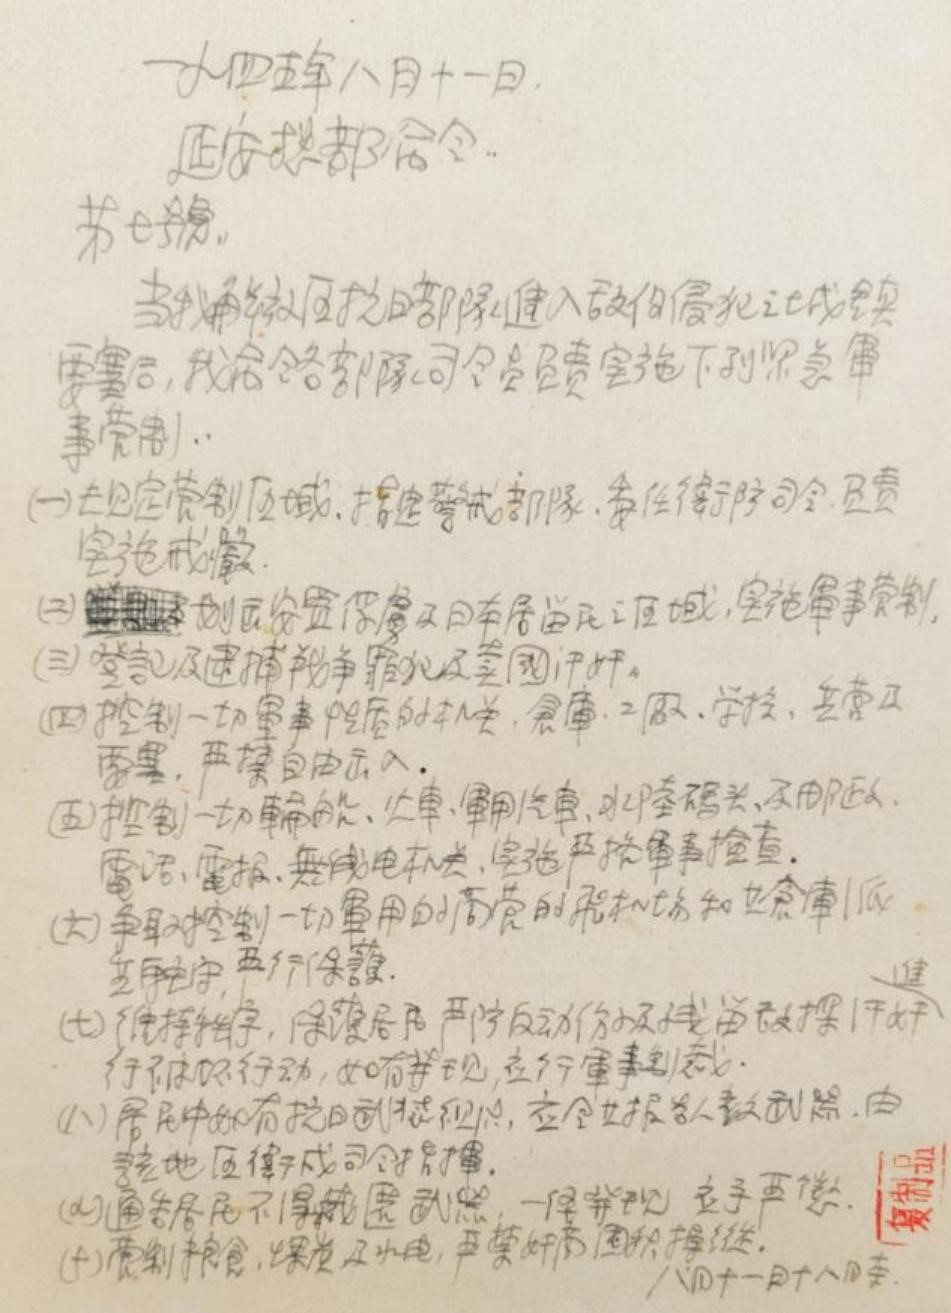 一九四五年八月十一日.
延安總部命令..
第七號..
当我解放区抗日部隊進入敌伪侵犯之城鎮
要塞后,我命令各部隊司令員負責实施下列紧急軍
事管制..
(一)規定管制区域.指定警戒部隊.委任衛戍司令.負責
实施戒嚴.
(二)划出安置俘虜及日本居留民之区域,实施軍事管制.
(三)登記及逮捕战争罪犯及卖國汗奸。
(四)控制一切軍事性质的机关.倉庫.工厰、学校、兵营及
要塞.严禁自由出入.
(五)控制一切輪船、火車、軍用汽車、水陸碼头、及邮政、
電话、電报、無线电机关、实施严格軍事检查.
(六)争取控制一切軍用的商营的飛机场和其倉庫,派
兵守,严行保護.
(七)維持秩序,保護居民 严防反动份子及残留敌探汗奸
進
行破坏行动,如有發现,立行軍事制裁.
(八)居民中如有抗日武装組織,应令其报告人数武器.由
該地区衛戍司令指揮.
(九)通告居民不得藏匿武器,一经發现 立予严懲.
(十)管制粮食,煤炭及水电,严禁奸商囤积操縱.
八月十一日十八时
复制品